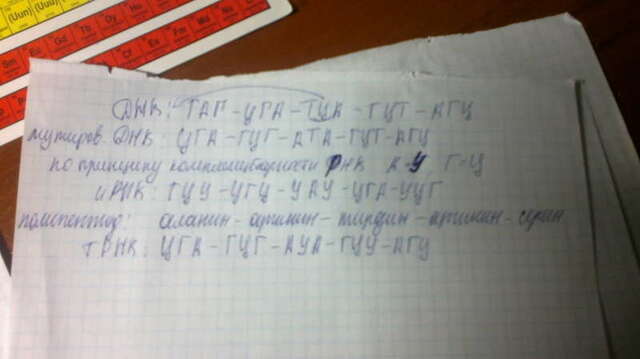 (Uun) (Uuu)
Sm Eu Gd Tb Dy Ho
Cr Fe Mn No
ДНК: ТАГ - ЦГА - ТЦА - ГЦТ - АГЦ
мутиров. ДНК: ЦГА - ГЦГ - АТА - ГЦТ - АГЦ
по принципу комплементарности РНК А-У Г-Ц
иРНК: ГЦУ - ЦГЦ - УАУ - ЦГА - УЦГ
полипептид: аланин - аргинин - тирозин - аргинин - серин
тРНК: ЦГА - ГЦГ - АУА - ГЦУ - АГЦ